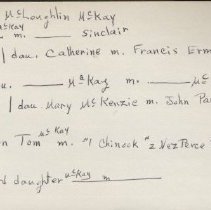 McLoughlin McKay
McKay m. Sinclair
1 dau. Catherine m. Francis Erm
u. McKay m. Mc
1 dau Mary McKenzie m. John Pa
n Tom McKay m. "1 Chinook "2 Nez Perce
d daughter McKay m